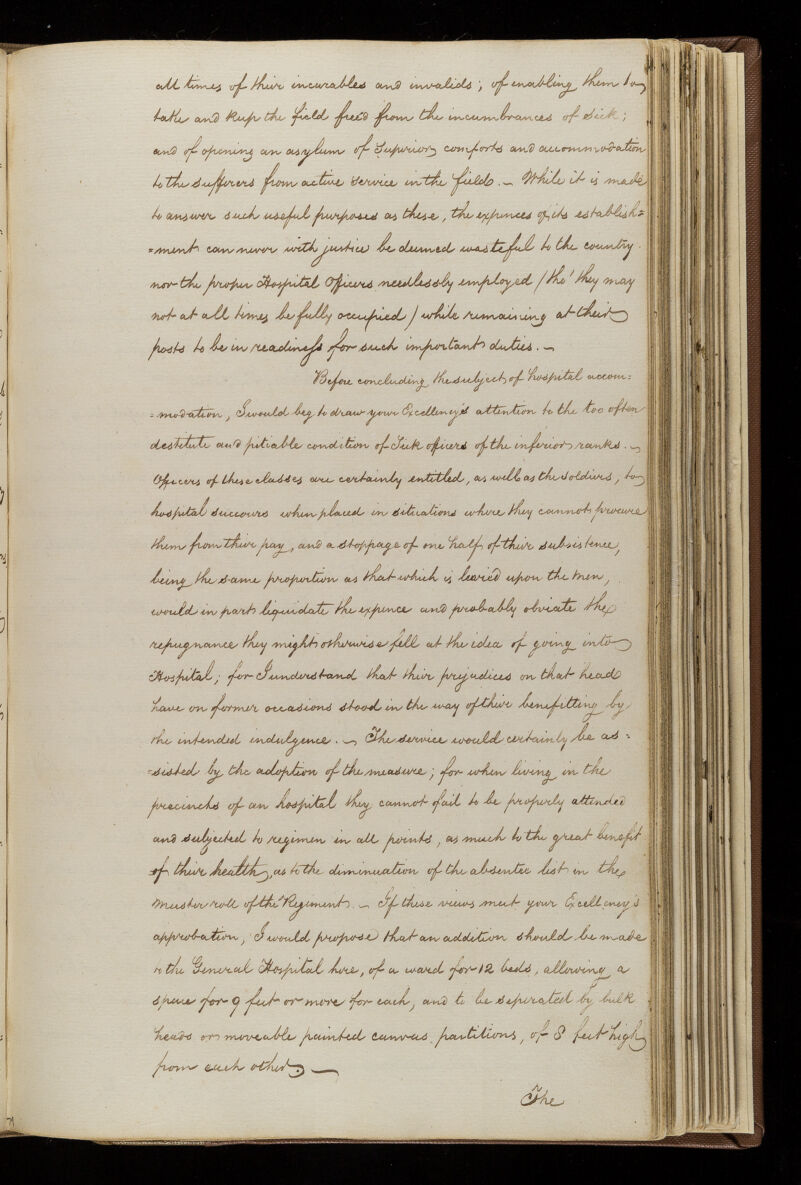 all times of their incurables and invalids; of enabling them to
take and keep the field freed from the incumbrances of sick;
and of opening an asylum of Superior comforts and accommodation
to the sufferers from active service in the field. – While it is made
to answer such useful purposes as these, the expences of its establish=
=ment can never with justice be deemed wasteful to the country
nor the proper Hospital Officers needlessly employed / tho' they may
not at all times be fully occupied / while remaining at their
posts to be in readiness for such important duties. –
Before concluding the subject of hospital accom=
=modation, I would beg to draw your Excellency's attention to the too often
destitute and pitiable condition of Sick officers of the inferior ranks. –
Officers of these classes are certainly entitled, as well as the soldiers, to
hospital succours when placed in situations where they cannot procure
them from their pay, and a stoppage of one half of their subsistence,
being the same proportion as that which is levied upon the men,
would in part liquidate the expence and probably obviate the
repugnance they might otherwise fell at the idea of going into
Hospital; for I understand that their prejudices on that head
have on former occasions stood in the way of their benefitting by
the intended indulgence. – The service would certainly be as=
=sisted by the adoption of the measure; for when living in the
precincts of an hospital they cannot fail to be properly attended
and subjected to regimen in all points, as much to the great benefit
of their health, as to the diminuation of the absentee list in the
muster roll of the Regiment. – If these views meet your Excellency's
approbation, I would propose that an addition should be made
to the General Hospital here, of a ward for 12 beds, allowing a
space for 9 feet or more for each, and to be seperated by bulk
heads or moveable painted canvas partitions, of 8 feet high
from each other. –
The